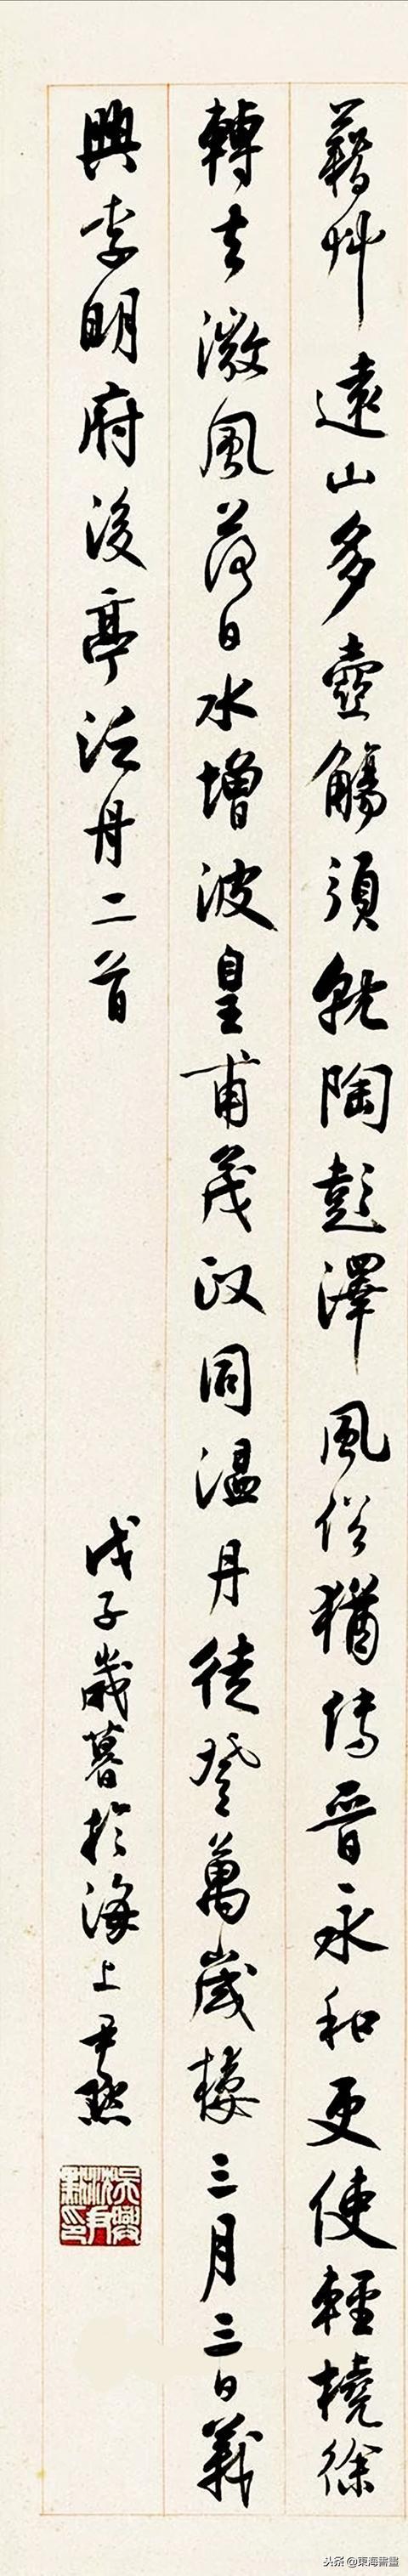 藉艸遠山多壺觴須就陶彭澤風俗猶傳晉永和更使輕橈徐
轉去微風落日水增波皇甫茂政同溫丹徒登萬歲樓三月三日義
興李明府後亭泛舟二首
戊子歲暮於海上尹默
吳興沈尹默印
头条 @東海書畫